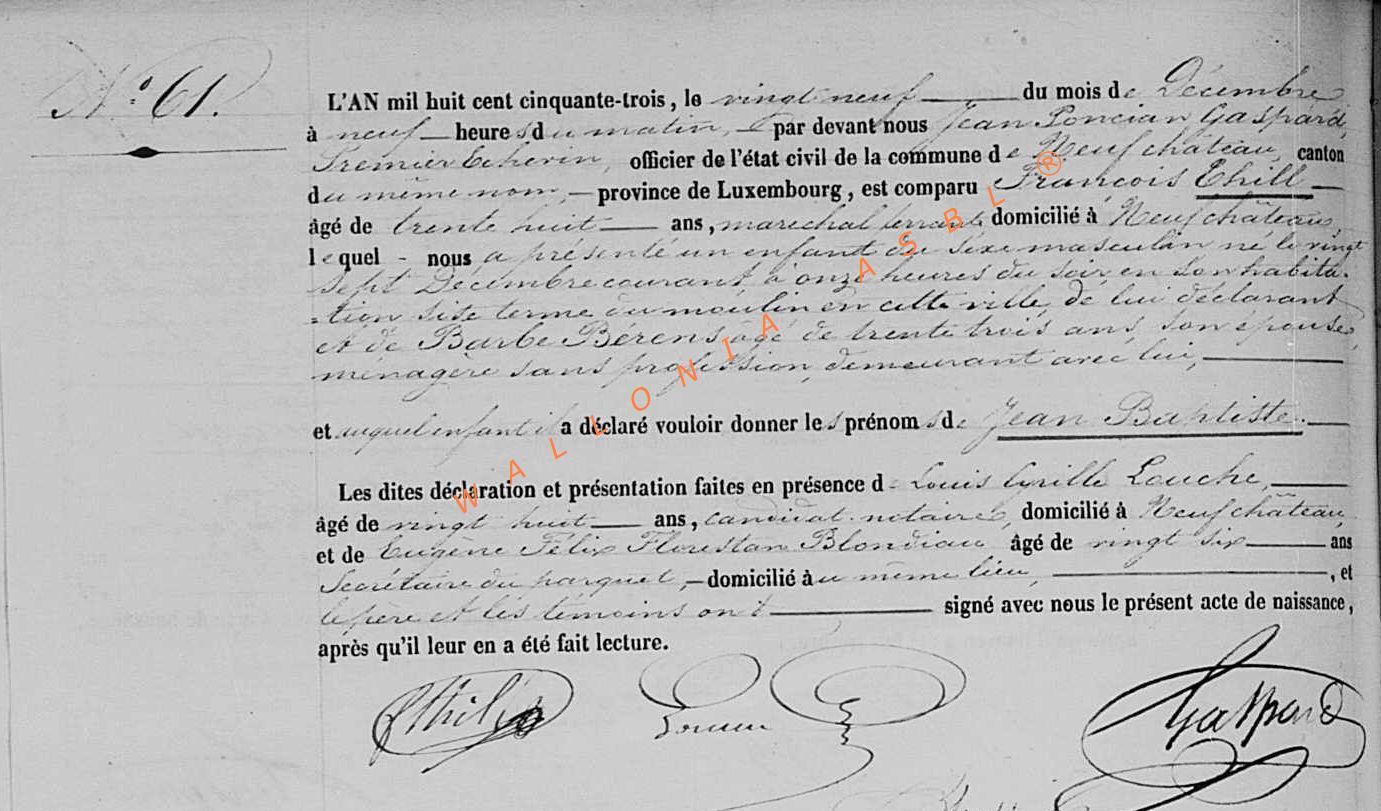 N.° 61.
L'AN mil huit cent cinquante-trois, le vingt neuf du mois de Décembre
à neuf heures du matin, par devant nous Jean Poncian Gaspard,
Premier Echevin, officier de l'état civil de la commune de Neufchâteau, canton
du même nom, province de Luxembourg, est comparu François Thill
âgé de trente huit ans, marechal ferrant, domicilié à Neufchâteau,
lequel nous a présenté un enfant du sexe masculin né le vingt
sept Décembre courant à onze heures du soir en son habita-
-tion site terme du moulin en cette ville, de lui déclarant
et de Barbe Bérens âgé de trente trois ans, son épouse,
ménagère sans profession, demeurant avec lui,
et auquel enfant il a déclaré vouloir donner les prénoms de Jean Baptiste.
Les dites déclaration et présentation faites en présence de Louis Cyrille Louche,
âgé de vingt huit ans, candidat notaire, domicilié à Neufchâteau,
et de Eugène Félix Florestan Blondiau âgé de vingt six ans
Secrétaire du parquet, domicilié au même lieu, et
le père et les témoins ont signé avec nous le présent acte de naissance,
après qu'il leur en a été fait lecture.
Thill Gaspard
WALLONIA ASBL ®